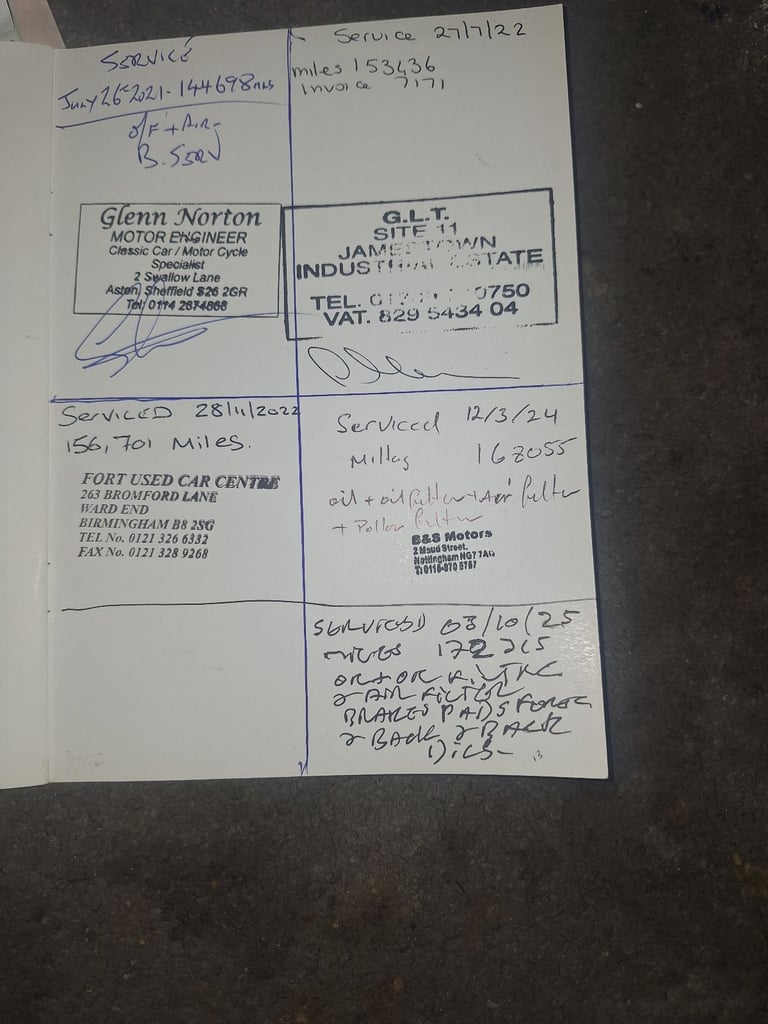 SERVICE
July 26th 2021 - 144698 mls
O/F + AIR
B. SERV
Glenn Norton
MOTOR ENGINEER
Classic Car / Motor Cycle
Specialist
2 Swallow Lane
Aston, Sheffield S26 2GR
Tel: 0114 2874868
Service 27/7/22
miles 153436
Invoice 7171
G.L.T.
SITE 11
JAMESTOWN
INDUSTRIAL ESTATE
TEL. 0750
VAT. 829 5434 04
SERVICED 28/11/2022
156,701 MILES.
FORT USED CAR CENTRE
263 BROMFORD LANE
WARD END
BIRMINGHAM B8 2SG
TEL No. 0121 326 6332
FAX No. 0121 328 9268
Serviced 12/3/24
Millag 168055
oil + oil filter + Air filter
+ Pollen filter
B&S Motors
2 Maud Street,
Nottingham NG7 7AG
T: 0115-970 5757
SERVICED 03/10/25
MILES 172215
& AIR FILTER
BRAKES PADS
& BACK & BACK